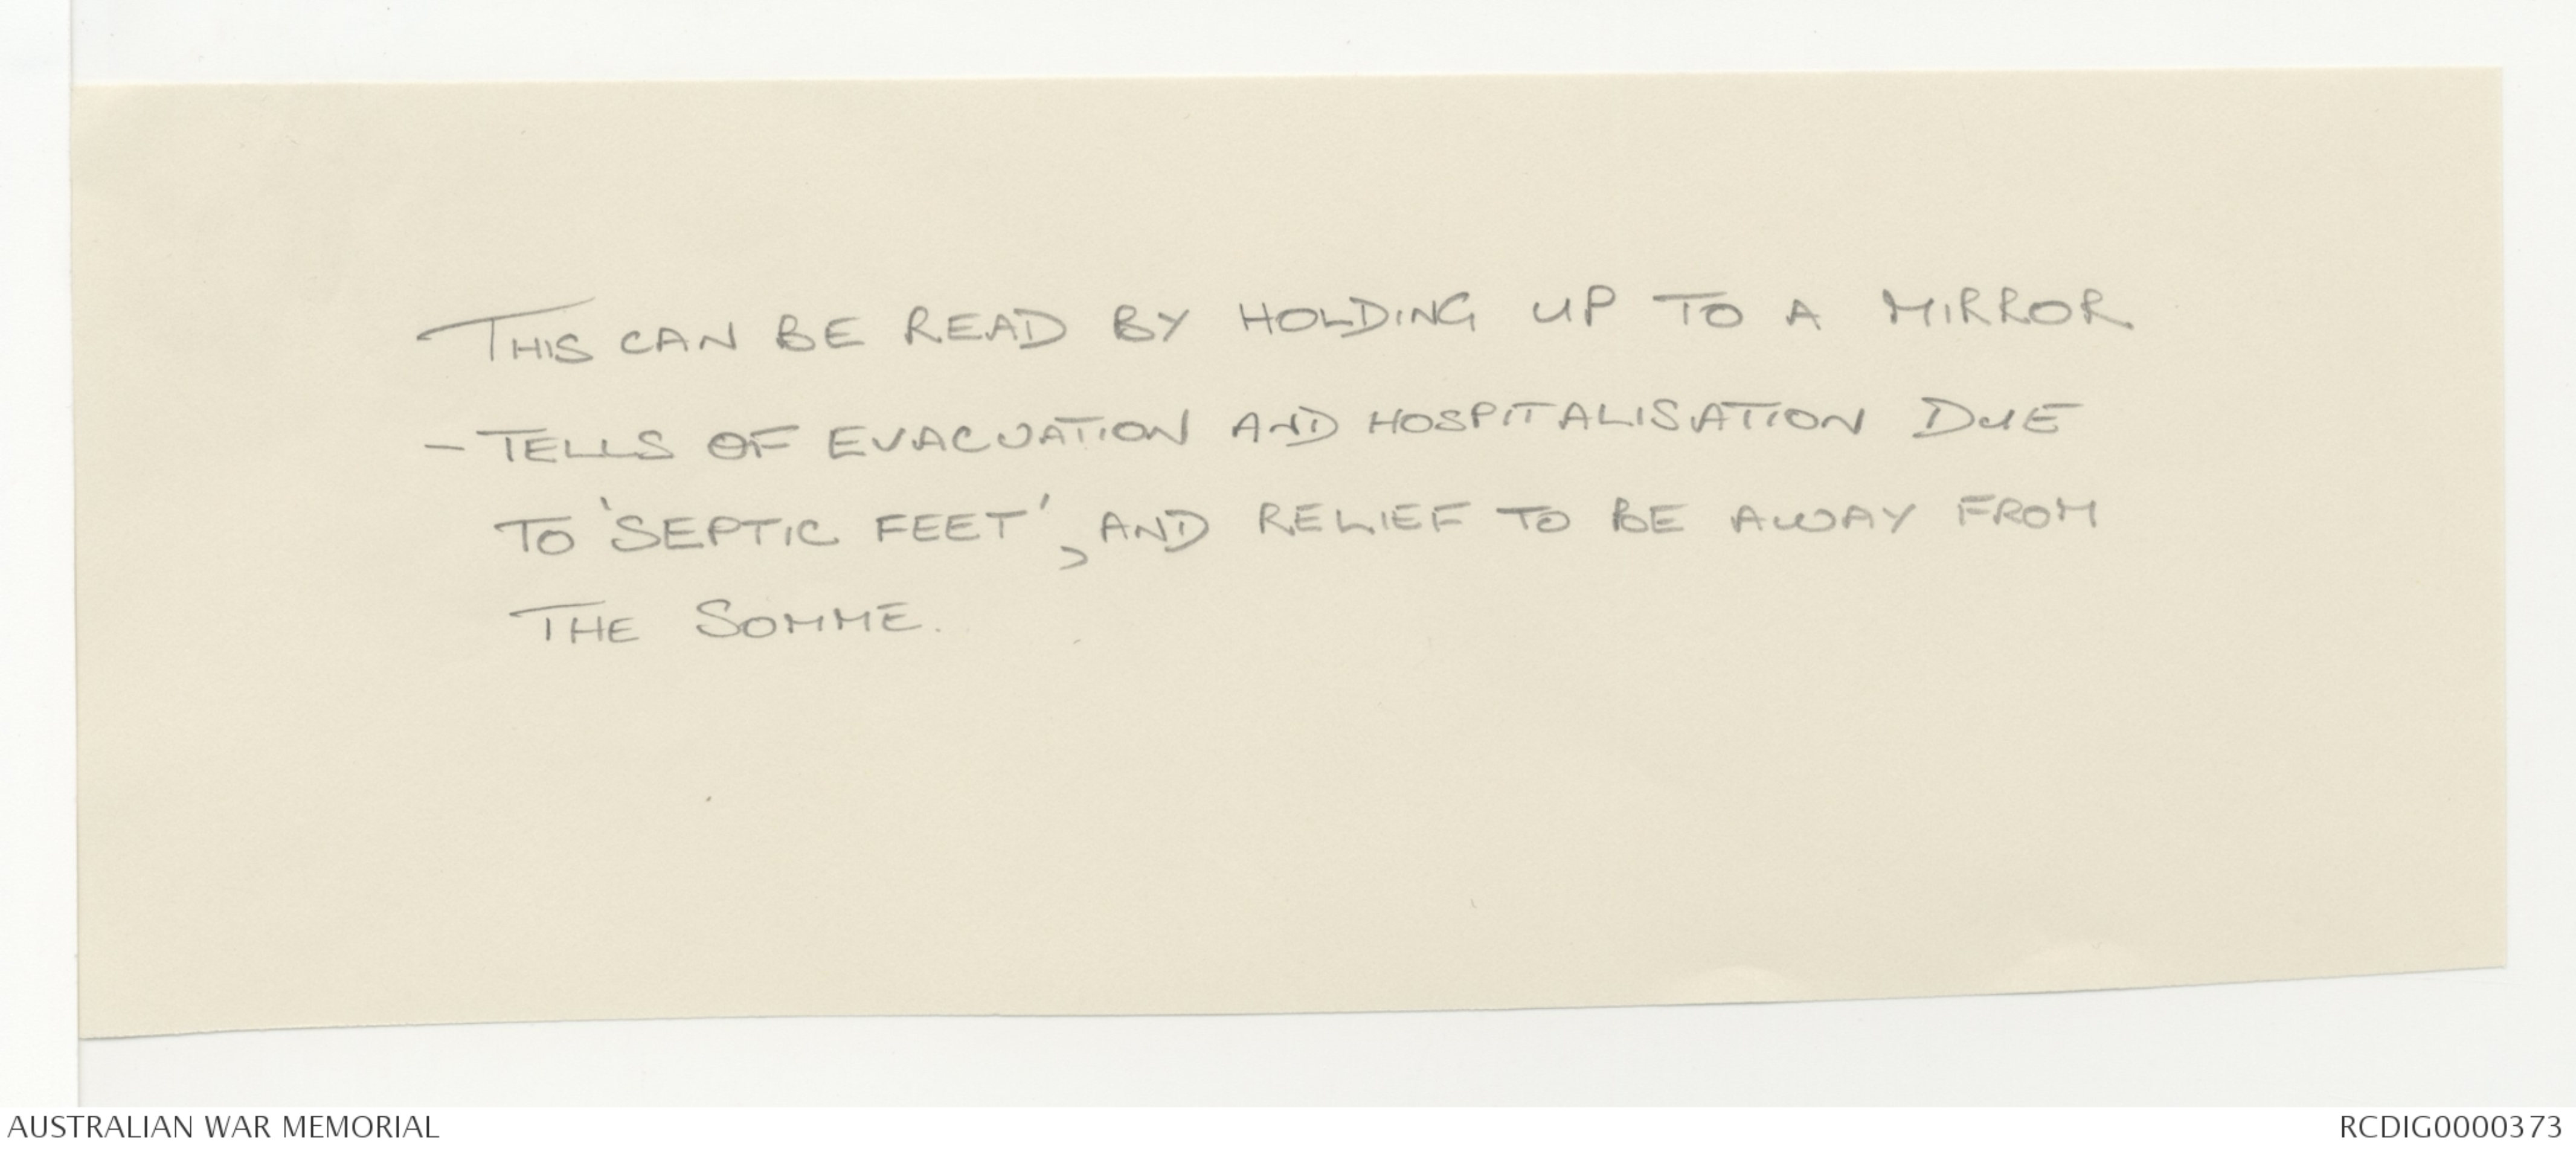 THIS CAN BE READ BY HOLDING UP TO A MIRROR
- TELLS OF EVACUATION AND HOSPITALISATION DUE
TO 'SEPTIC FEET', AND RELIEF TO BE AWAY FROM
THE SOMME.
AUSTRALIAN WAR MEMORIAL
RCDIG0000373